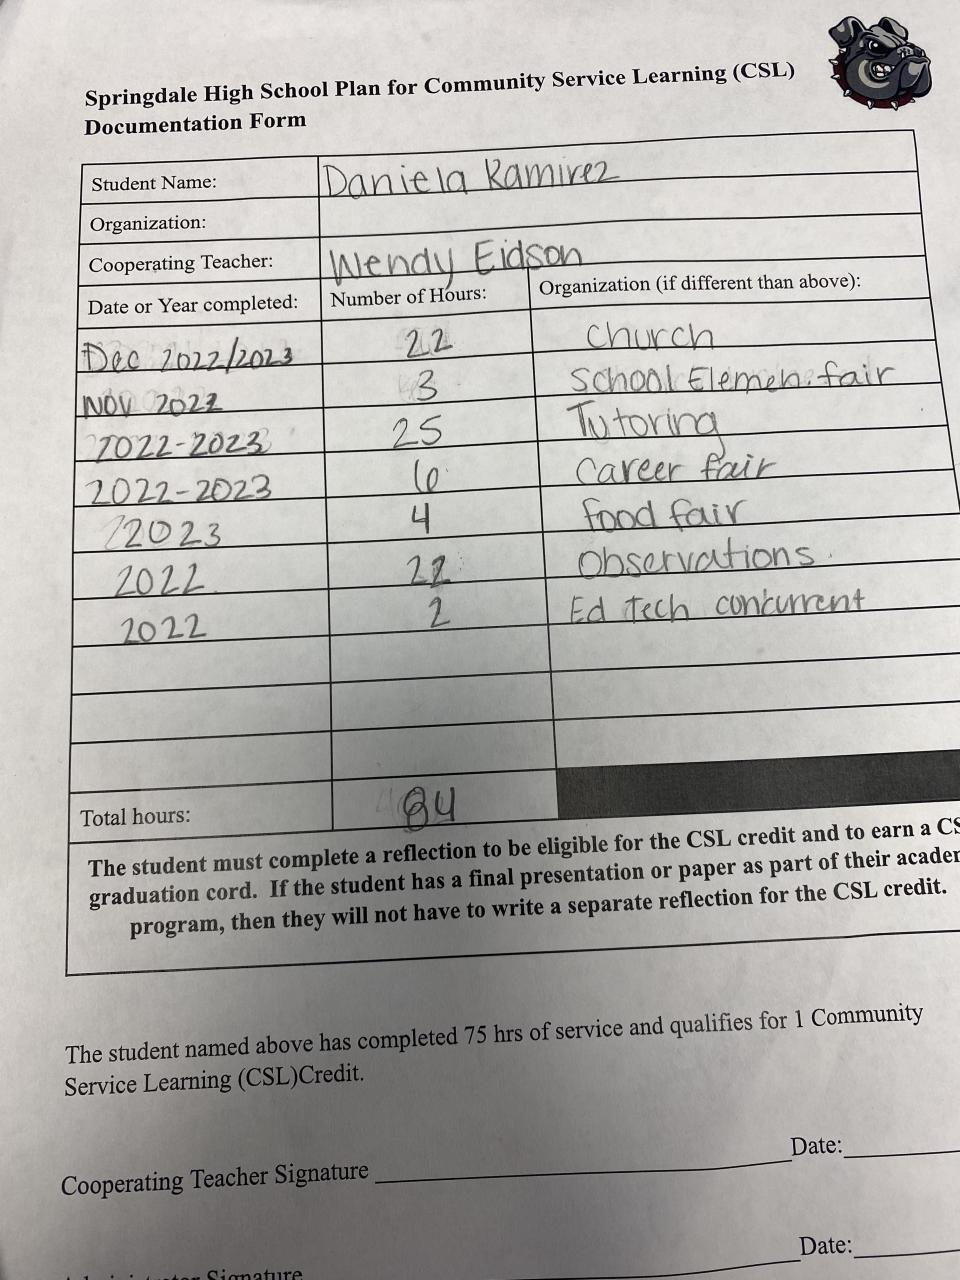 Springdale High School Plan for Community Service Learning (CSL)
Documentation Form
Student Name: Daniela Ramirez
Organization:
Cooperating Teacher: Wendy Eidson
Date or Year completed: Number of Hours: Organization (if different than above):
Dec 2022/2023 22 church
NOV 2022 3 School Elemen. fair
2022-2023 25 Tutoring
2022-2023 6 career fair
2023 4 food fair
2022 22 observations
2022 2 Ed Tech concurrent
Total hours: 84
The student must complete a reflection to be eligible for the CSL credit and to earn a CS
graduation cord. If the student has a final presentation or paper as part of their acader
program, then they will not have to write a separate reflection for the CSL credit.
The student named above has completed 75 hrs of service and qualifies for 1 Community
Service Learning (CSL)Credit.
Cooperating Teacher Signature Date:
Signature Date: